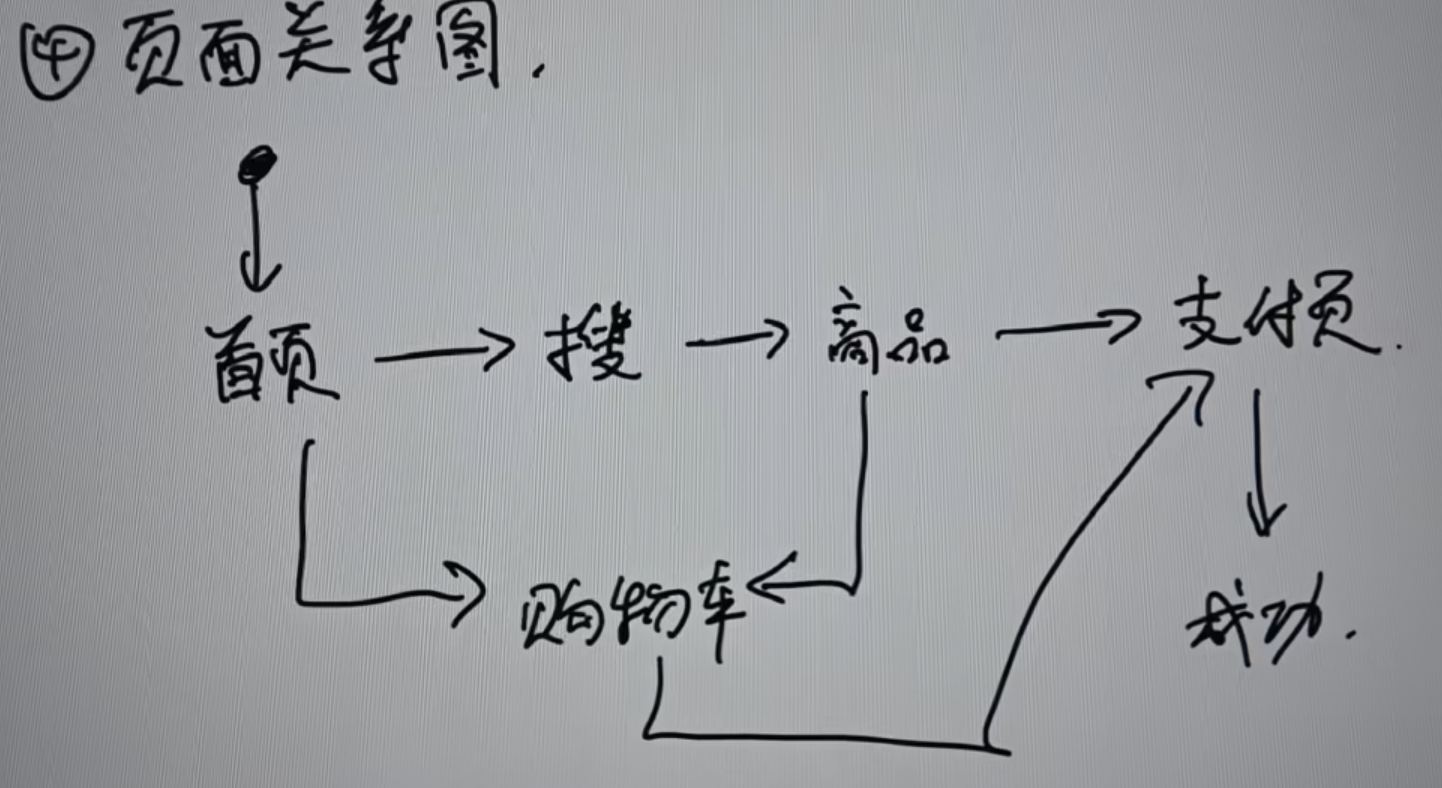 ④页面关系图.
首页 → 搜 → 商品 → 支付页.
购物车
成功.